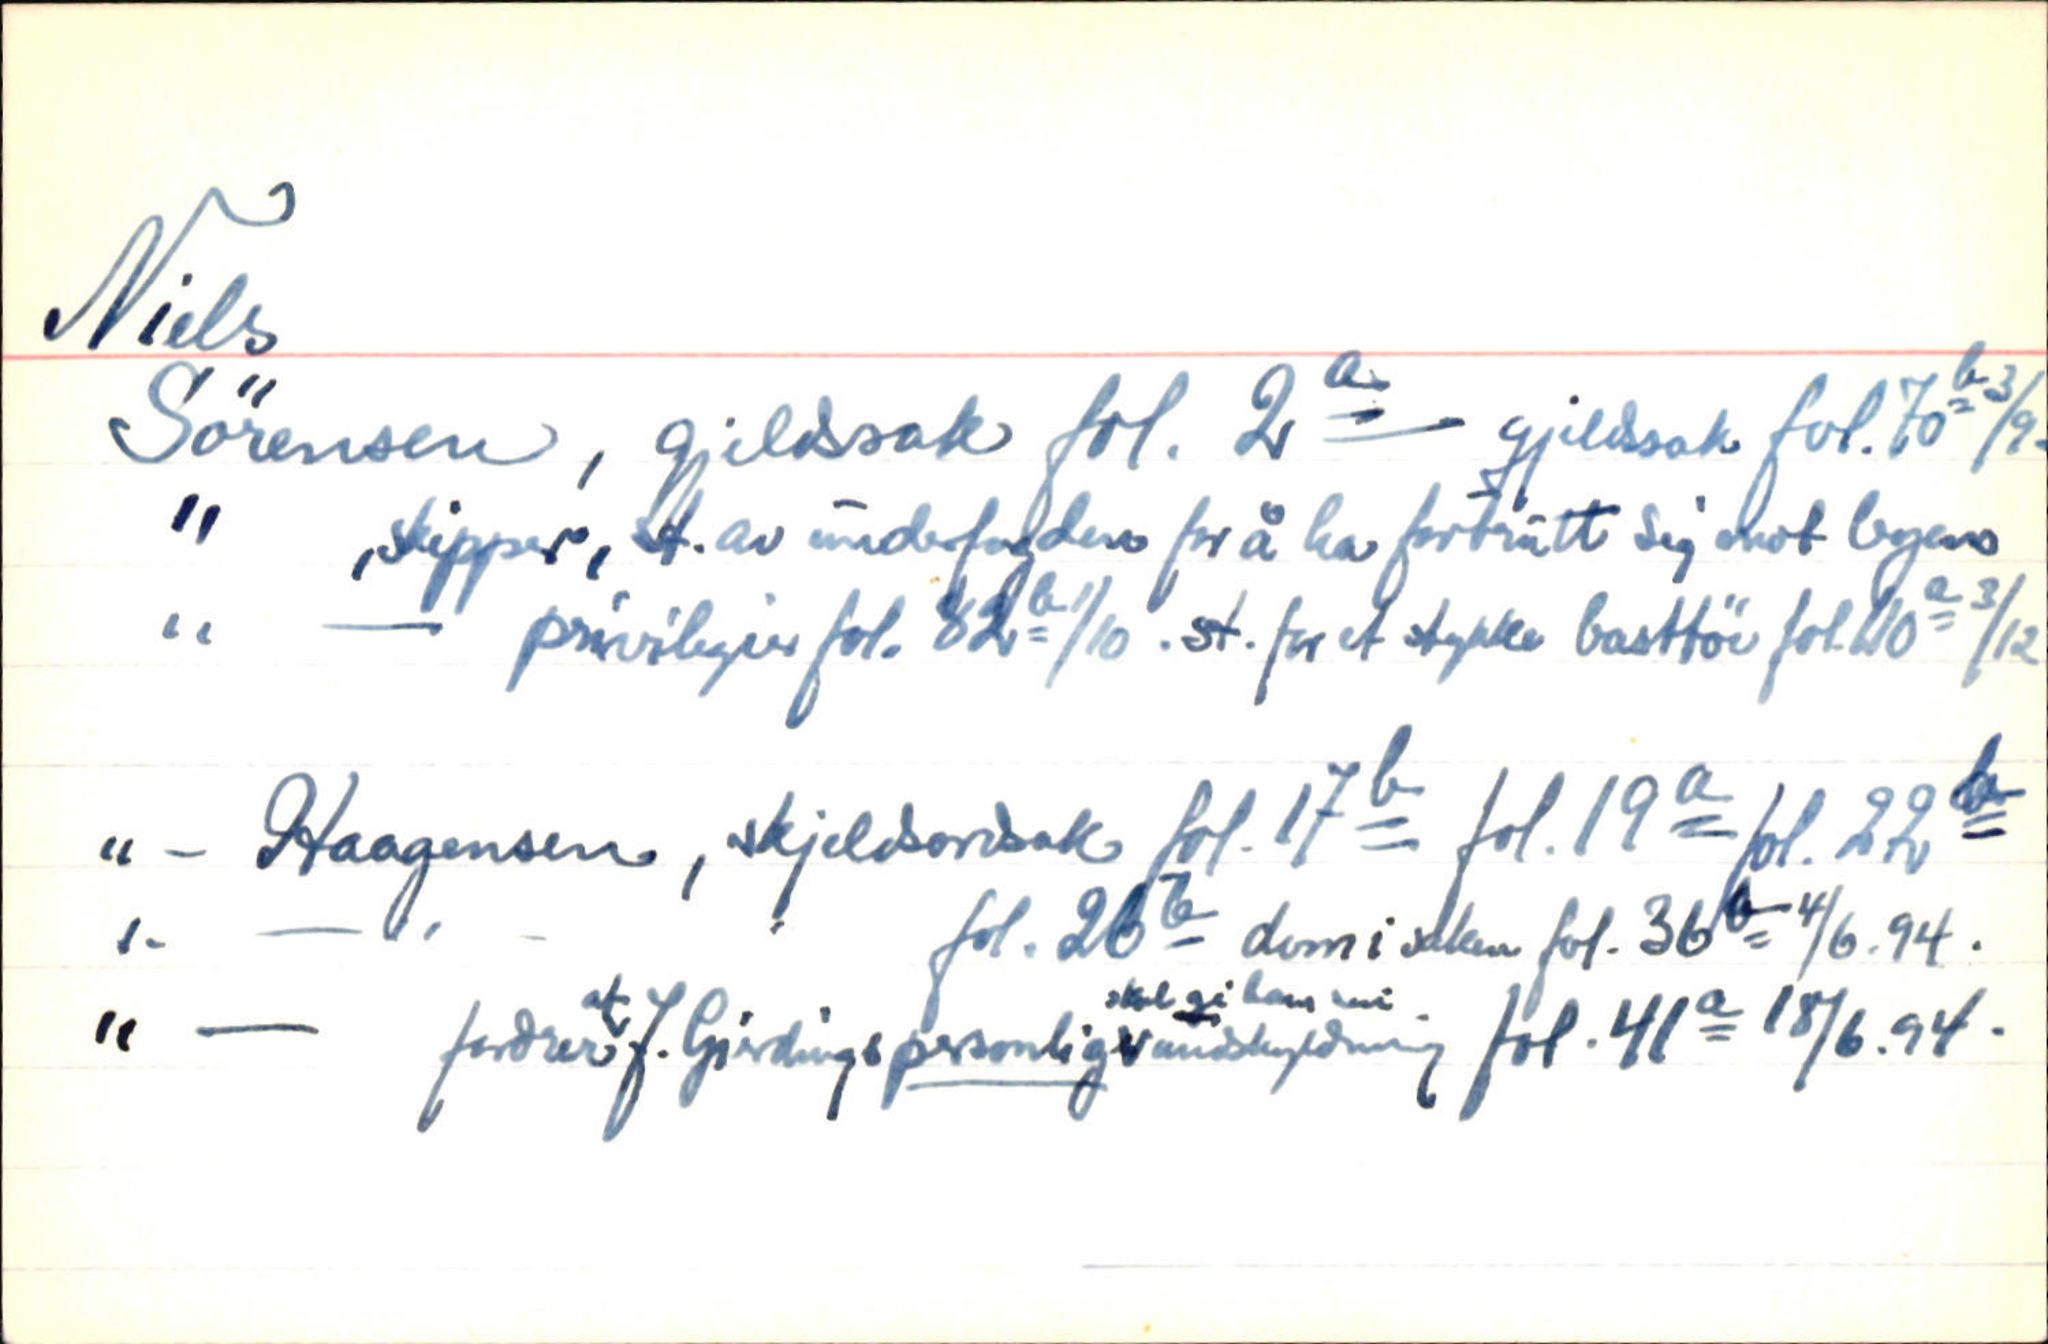 Niels
Sörensen, gjeldssak fol. 2 a — gjeldssak fol. 70 b 3/9.
" , skipper, st. av underfogden for å ha forbrütt sig mot byens
" — privilegier fol. 82 b 1/10. st. for et stykke basttöi fol. 110 a 3/12
" - Haagensen, skjeldsordsak fol. 17 b fol. 19 a fol. 22 b
" - — " - " fol. 26 b dom i saken fol. 36 b 4/6.94.
" — fordrer at J. Gjerdings skal gi ham sin personlig undskyldning fol. 41 a 18/6.94.